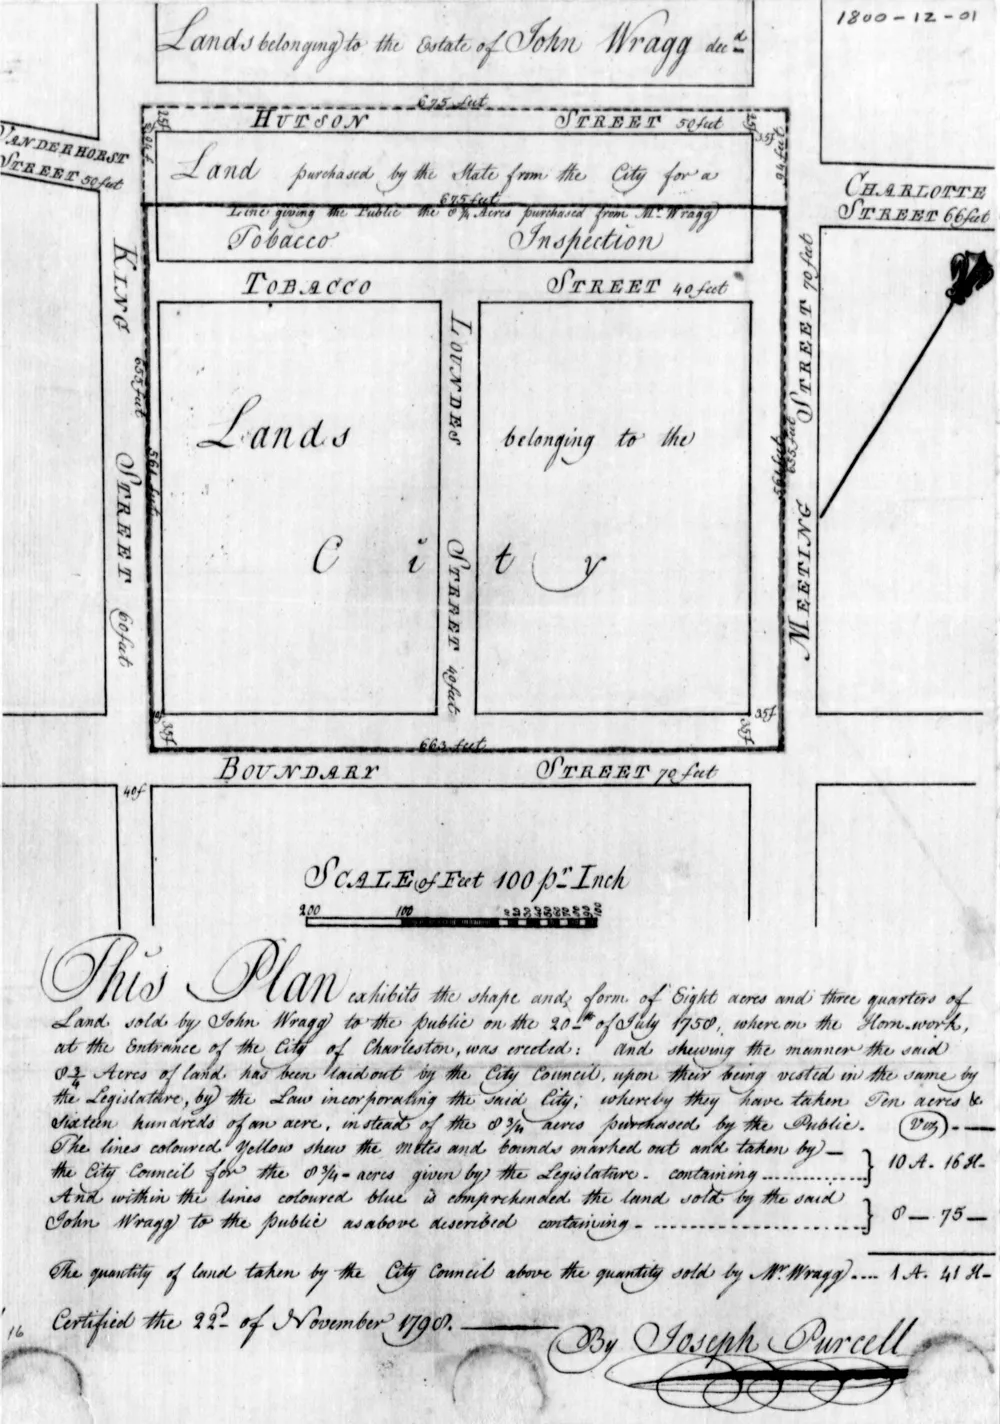 1800-12-01
Lands belonging to the Estate of John Wragg decd
675 feet
HUTSON STREET 50 feet
25f
25f
35f
VANDERHORST
STREET 50 feet
94 feet
Land purchased by the State from the City for a
675 feet
Line giving the Public the 8¾ Acres purchased from Mr. Wragg
Tobacco Inspection
CHARLOTTE
STREET 66 feet
TOBACCO STREET 40 feet
KING STREET 60 feet
655 feet
561 feet
LOUNDES STREET 40 feet
MEETING STREET 70 feet
561 feet
655 feet
Lands belonging to the
City
35f
35f
35f
663 feet
BOUNDARY STREET 70 feet
40f
SCALE of Feet 100 pr Inch
200 100 10 20 30 40 50 60 70 80 90 100
This Plan exhibits the shape and form of Eight acres and three quarters of
Land sold by John Wragg to the public on the 20th of July 1758, where on the Horn-work,
at the Entrance of the City of Charleston, was erected: and shewing the manner the said
8¾ Acres of land has been laid out by the City Council, upon their being vested in the same by
the Legislature, by the Law incorporating the said City; whereby they have taken Ten acres &
Sixteen hundreds of an acre, instead of the 8¾ acres purchased by the Public. (Viz)
The lines coloured Yellow shew the metes and bounds marked out and taken by
the City Council for the 8¾ acres given by the Legislature. containing 10 A. 16 H
And within the lines coloured blue is comprehended the land sold by the said
John Wragg to the public as above described containing 8 — 75
The quantity of land taken by the City Council above the quantity sold by Mr Wragg 1 A. 41 H
Certified the 22d of November 1798.
By Joseph Purcell
16